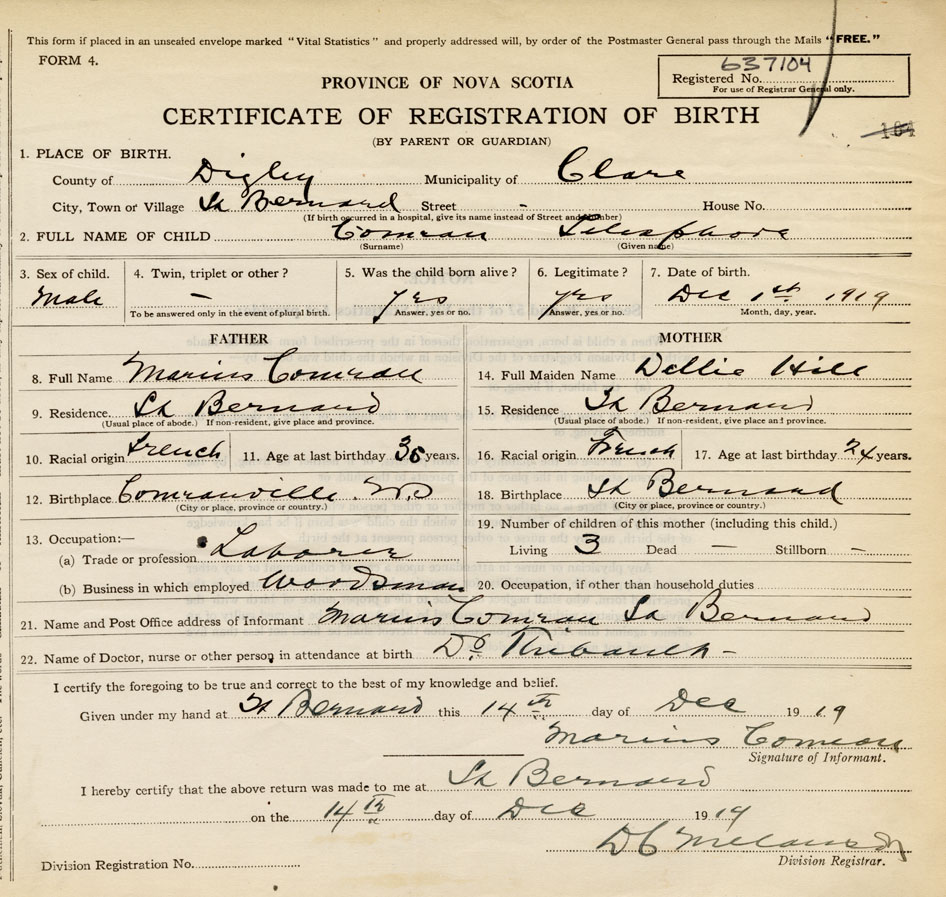 This form if placed in an unsealed envelope marked "Vital Statistics" and properly addressed will, by order of the Postmaster General pass through the Mails "FREE."
FORM 4.
637104
Registered No.
For use of Registrar General only.
PROVINCE OF NOVA SCOTIA
CERTIFICATE OF REGISTRATION OF BIRTH
104
(BY PARENT OR GUARDIAN)
1. PLACE OF BIRTH.
County of Digby Municipality of Clare
City, Town or Village St Bernard Street - House No.
(If birth occurred in a hospital, give its name instead of Street and Number)
2. FULL NAME OF CHILD Comeau Telesphore
(Surname) (Given name)
3. Sex of child. 4. Twin, triplet or other? 5. Was the child born alive? 6. Legitimate? 7. Date of birth.
Male — yes yes Dec 1st 1919
To be answered only in the event of plural birth. Answer, yes or no. Answer, yes or no. Month, day, year.
FATHER MOTHER
8. Full Name Marius Comeau 14. Full Maiden Name Dellie Hill
9. Residence St Bernard 15. Residence St Bernard
(Usual place of abode.) If non-resident, give place and province. (Usual place of abode.) If non-resident, give place and province.
10. Racial origin French 11. Age at last birthday 36 years. 16. Racial origin French 17. Age at last birthday 24 years.
12. Birthplace Comeauville N.S 18. Birthplace St Bernard
(City or place, province or country.) (City or place, province or country.)
13. Occupation:— 19. Number of children of this mother (including this child.)
(a) Trade or profession Laborer Living 3 Dead — Stillborn -
(b) Business in which employed Woodsman 20. Occupation, if other than household duties
21. Name and Post Office address of Informant Marius Comeau St Bernard
22. Name of Doctor, nurse or other person in attendance at birth Dr Thibault -
I certify the foregoing to be true and correct to the best of my knowledge and belief.
Given under my hand at St Bernard this 14th day of Dec 1919
Marius Comeau
Signature of Informant.
I hereby certify that the above return was made to me at St Bernard
on the 14th day of Dec 1919
Division Registrar.
Division Registration No.